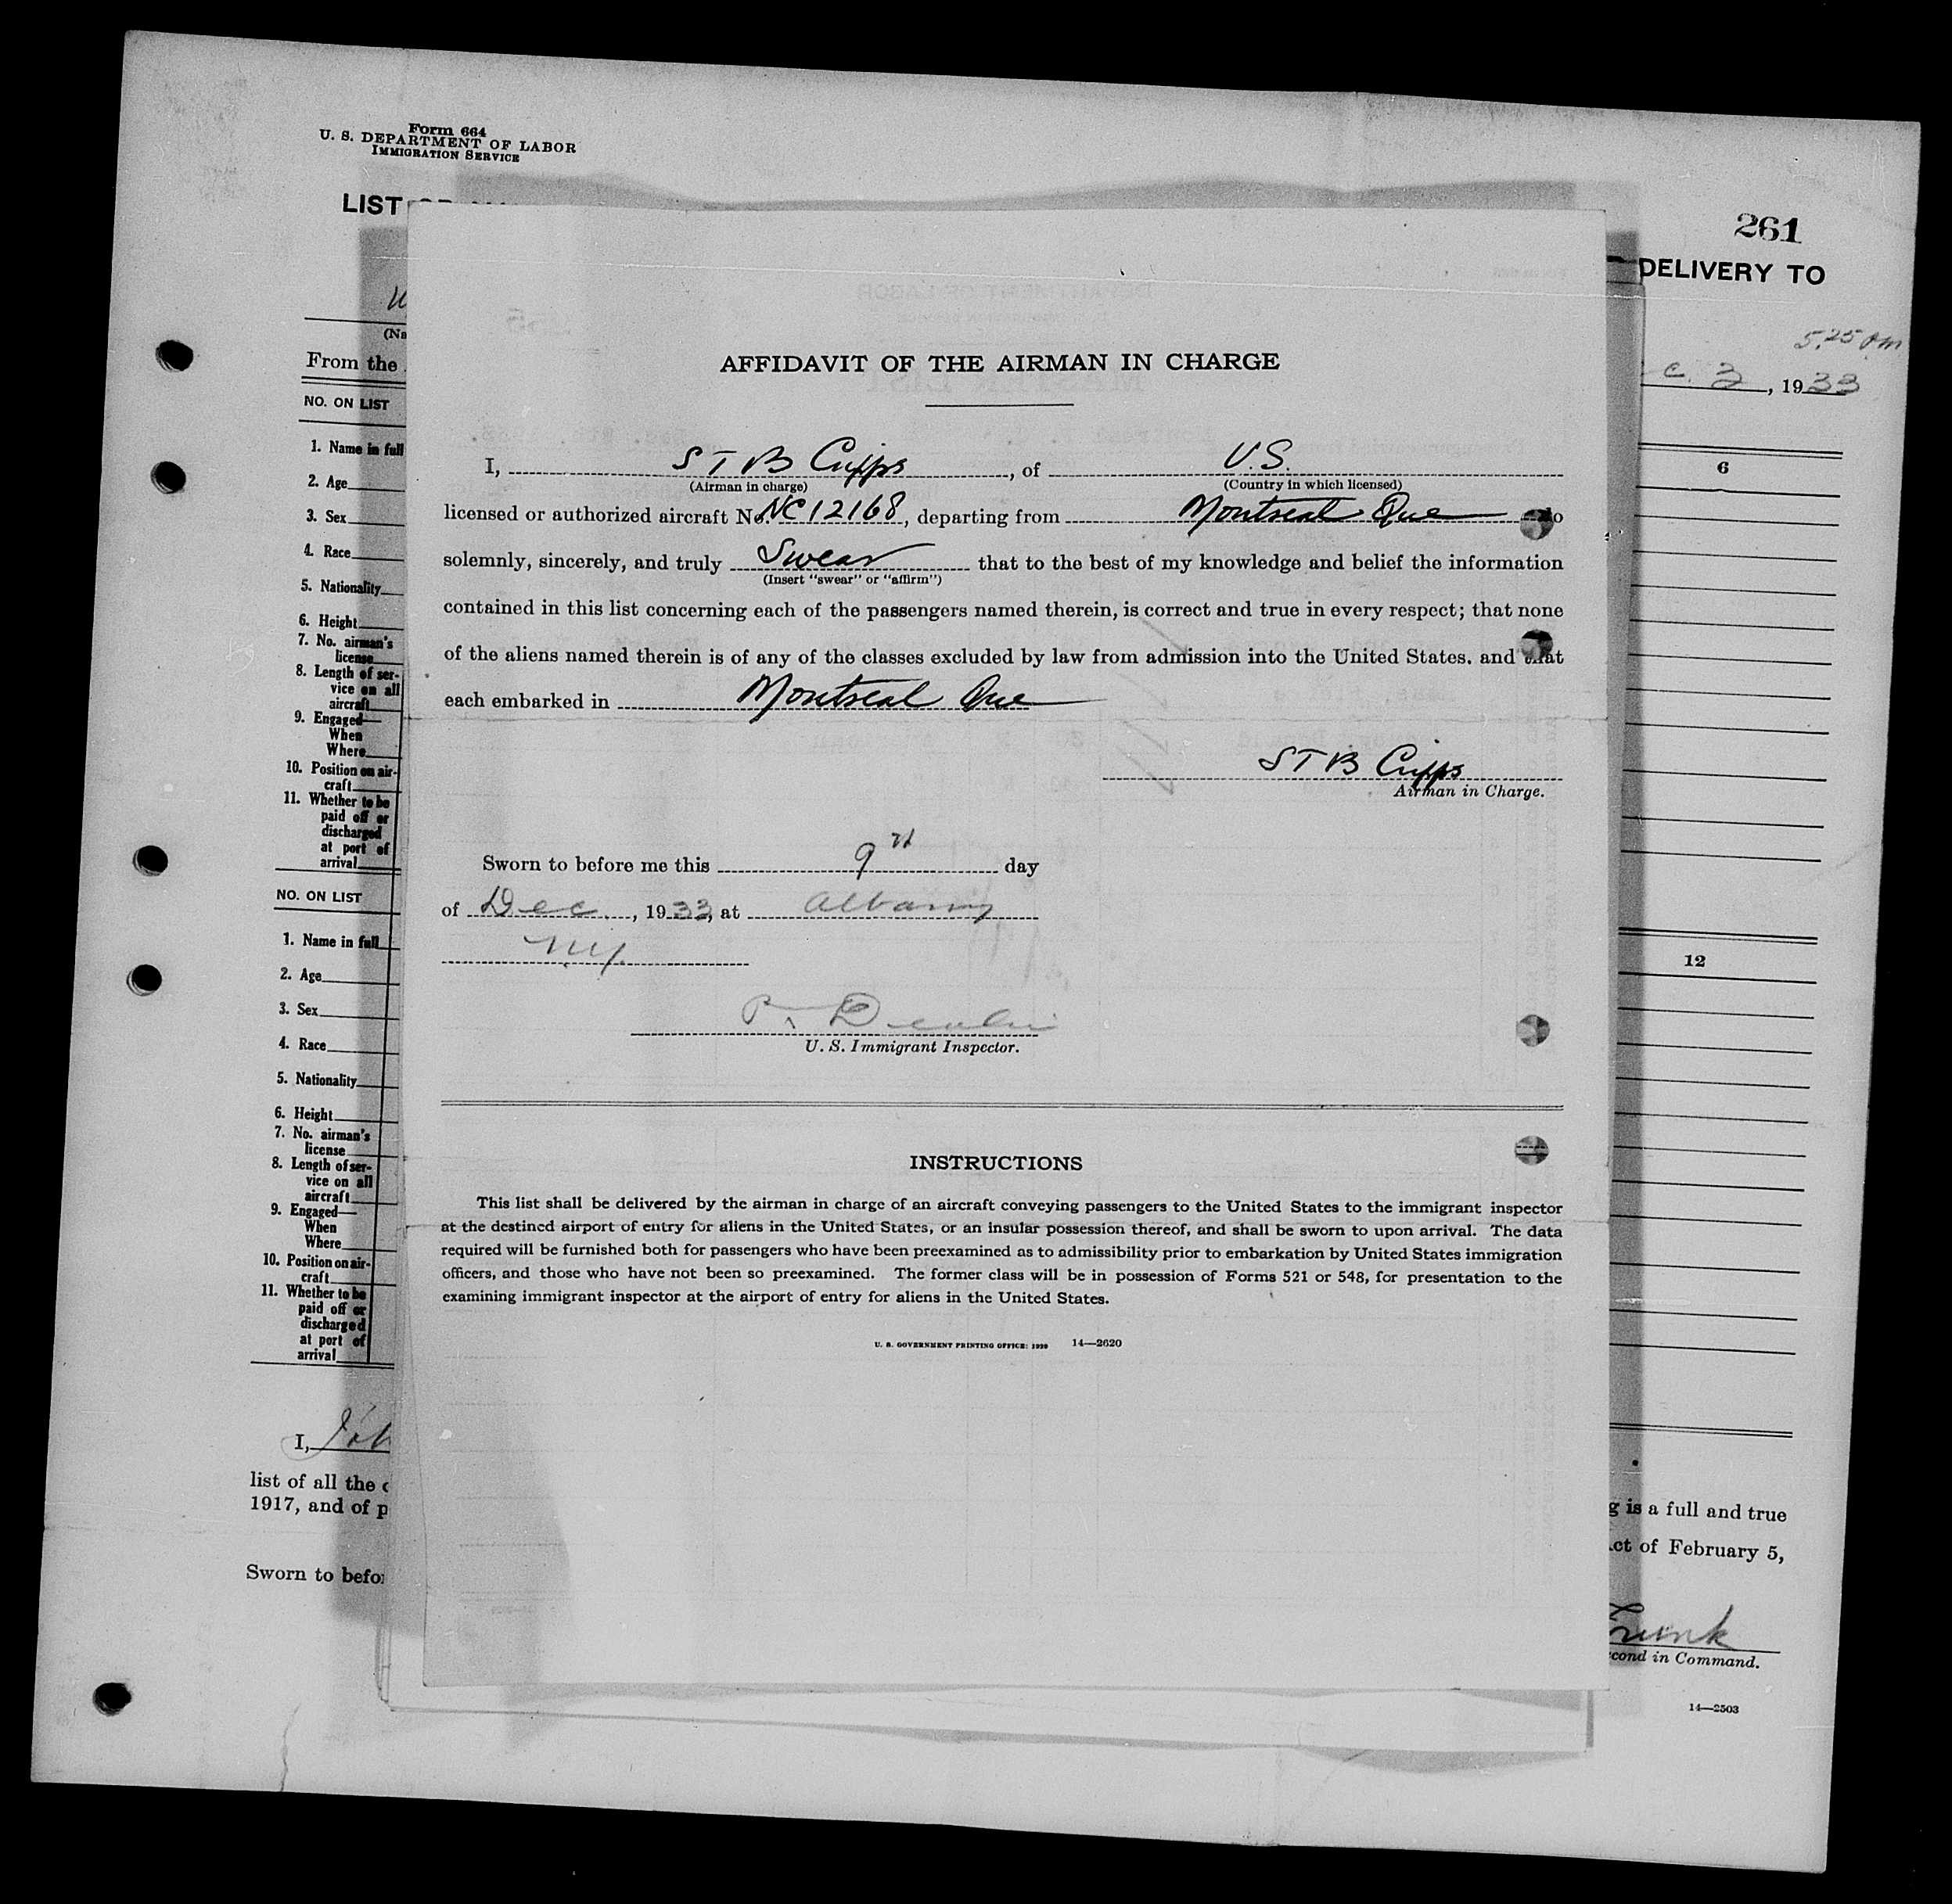 Form 664
U. S. DEPARTMENT OF LABOR
IMMIGRATION SERVICE
LIST
261
DELIVERY TO
5.25 pm
From the
c. 3, 1933
NO. ON LIST
6
1. Name in full
2. Age
3. Sex
4. Race
5. Nationality
6. Height
7. No. airman's
license
8. Length of ser-
vice on all
aircraft
9. Engaged—
When
Where
10. Position on air-
craft
11. Whether to be
paid off or
discharged
at port of
arrival
NO. ON LIST
12
1. Name in full
2. Age
3. Sex
4. Race
5. Nationality
6. Height
7. No. airman's
license
8. Length of ser-
vice on all
aircraft
9. Engaged—
When
Where
10. Position on air-
craft
11. Whether to be
paid off or
discharged
at port of
arrival
I,
list of all the
1917, and of
Sworn to
is a full and true
of February 5,
in Command.
14—2503
AFFIDAVIT OF THE AIRMAN IN CHARGE
I, S T B Cripps, of U.S.
(Airman in charge) (Country in which licensed)
licensed or authorized aircraft No. NC12168, departing from Montreal Que do
solemnly, sincerely, and truly Swear that to the best of my knowledge and belief the information
(Insert "swear" or "affirm")
contained in this list concerning each of the passengers named therein, is correct and true in every respect; that none
of the aliens named therein is of any of the classes excluded by law from admission into the United States. and that
each embarked in Montreal Que
S T B Cripps
Airman in Charge.
Sworn to before me this 9th day
of Dec., 1933, at Albany
NY.
U. S. Immigrant Inspector.
INSTRUCTIONS
This list shall be delivered by the airman in charge of an aircraft conveying passengers to the United States to the immigrant inspector
at the destined airport of entry for aliens in the United States, or an insular possession thereof, and shall be sworn to upon arrival. The data
required will be furnished both for passengers who have been preexamined as to admissibility prior to embarkation by United States immigration
officers, and those who have not been so preexamined. The former class will be in possession of Forms 521 or 548, for presentation to the
examining immigrant inspector at the airport of entry for aliens in the United States.
U. S. GOVERNMENT PRINTING OFFICE: 1929 14—2620